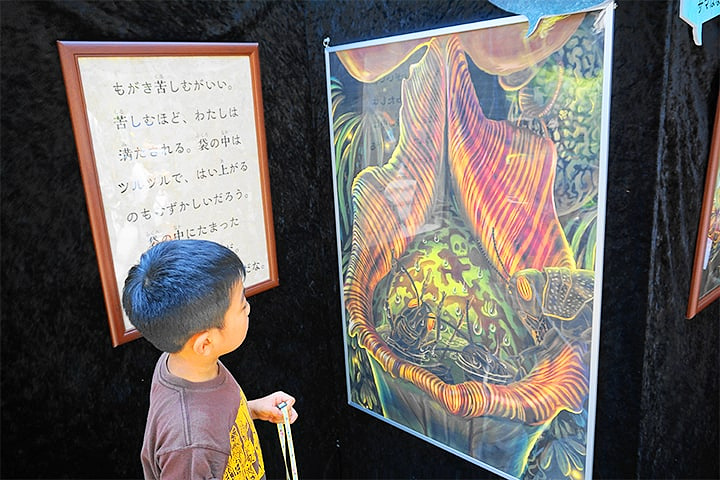 もがき苦しむがいい。
苦しむほど、わたしは
満たされる。袋の中は
ツルツルで、はい上がる
のもむずかしいだろう。
袋の中にたまった
だな。